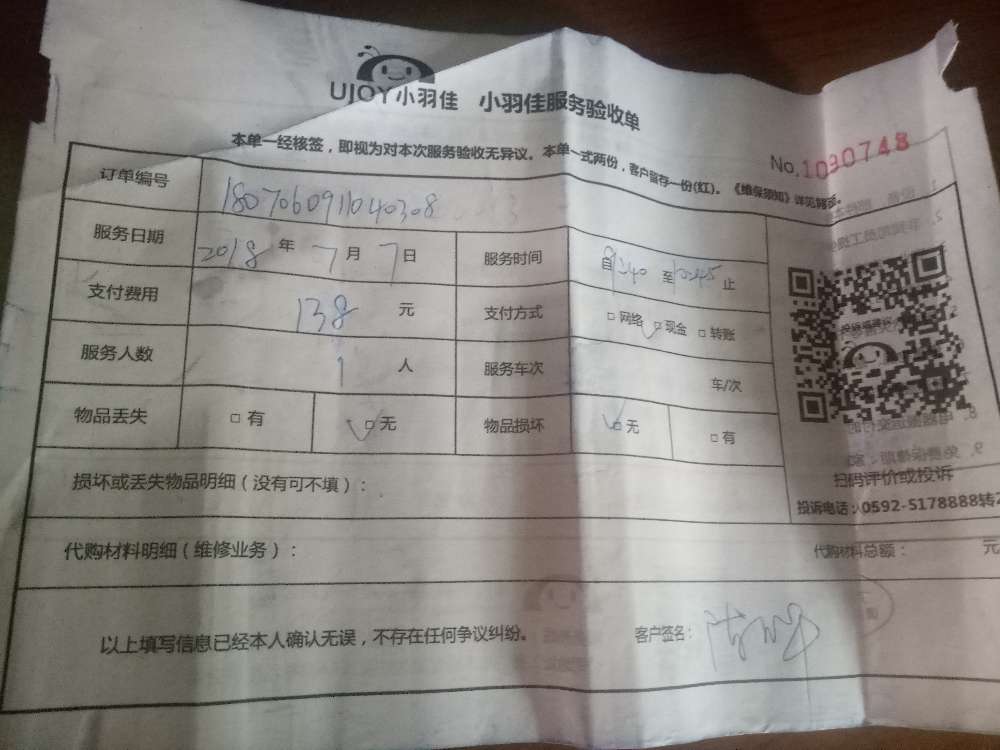 UJOY小羽佳 小羽佳服务验收单
本单一经核签，即视为对本次服务验收无异议。本单一式两份，客户留存一份(红)。《维保须知》详见背面。
No.1030748
订单编号 180706091040308
服务日期 2018年7月7日 服务时间 自 至 止
支付费用 138 元 支付方式 □网络 □现金 □转账
服务人数 1 人 服务车次 车/次
物品丢失 □有 □无 物品损坏 □无 □有
扫码评价或投诉
投诉电话：0592-5178888转2
损坏或丢失物品明细（没有可不填）：
代购材料明细（维修业务）： 代购材料总额： 元
以上填写信息已经本人确认无误，不存在任何争议纠纷。 客户签名：